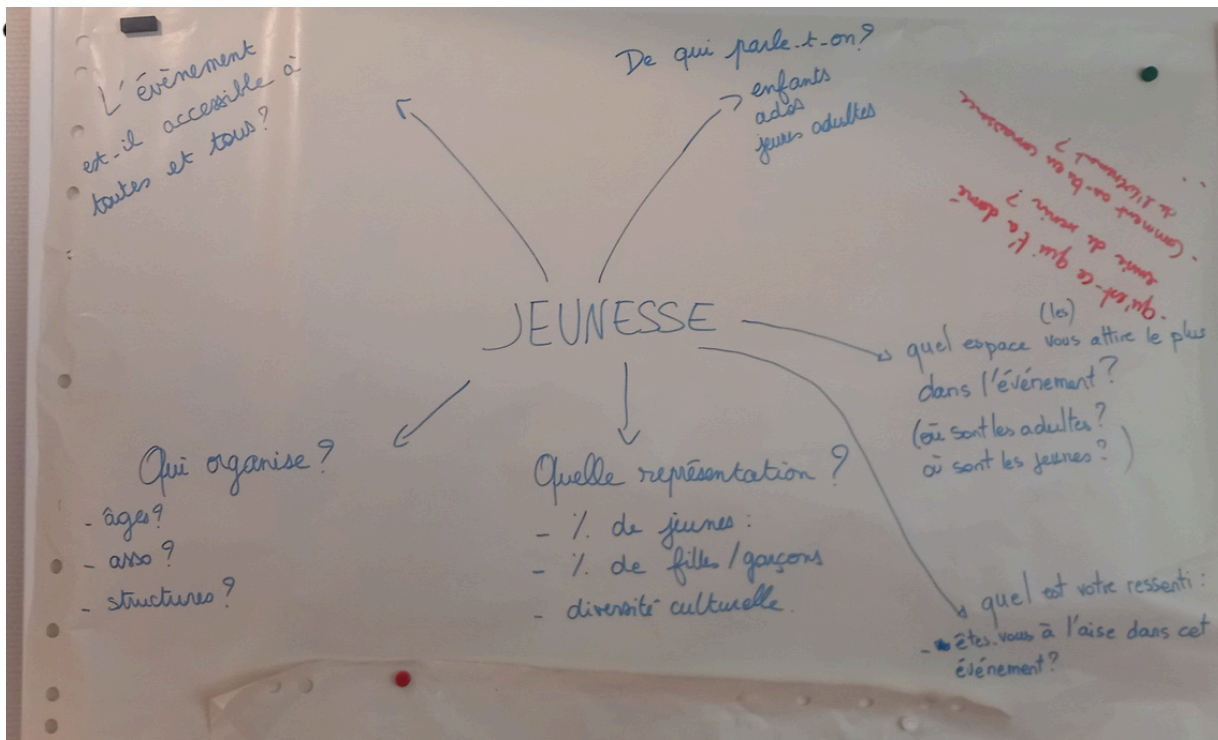 L'évènement
est-il accessible à
toutes et tous?
De qui parle-t-on?
enfants
ados
jeunes adultes
- qu'est-ce qui t'a donné
envie de venir ?
- Comment as-tu eu connaissance
de l'événement ?
JEUNESSE
(les)
quel espace vous attire le plus
dans l'événement?
(où sont les adultes?
où sont les jeunes?)
Qui organise?
- âges?
- asso?
- structures?
Quelle représentation?
- % de jeunes:
- % de filles/garçons
- diversité culturelle.
quel est votre ressenti:
- êtes-vous à l'aise dans cet
événement?